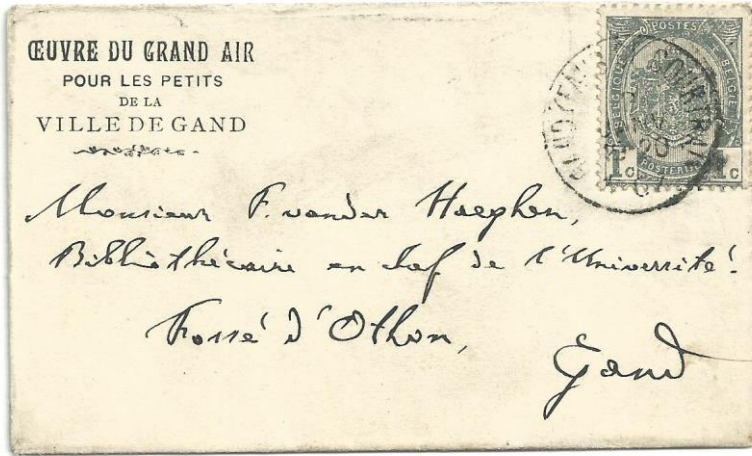 ŒUVRE DU GRAND AIR
POUR LES PETITS
DE LA
VILLE DE GAND
POSTES
BELGIQUE
BELGIË
POSTERIJEN
1c 1c
COURTRAI
Monsieur F. vander Haeghen,
Bibliothécaire en chef de l'Université.
Fossé d'Othon,
Gand